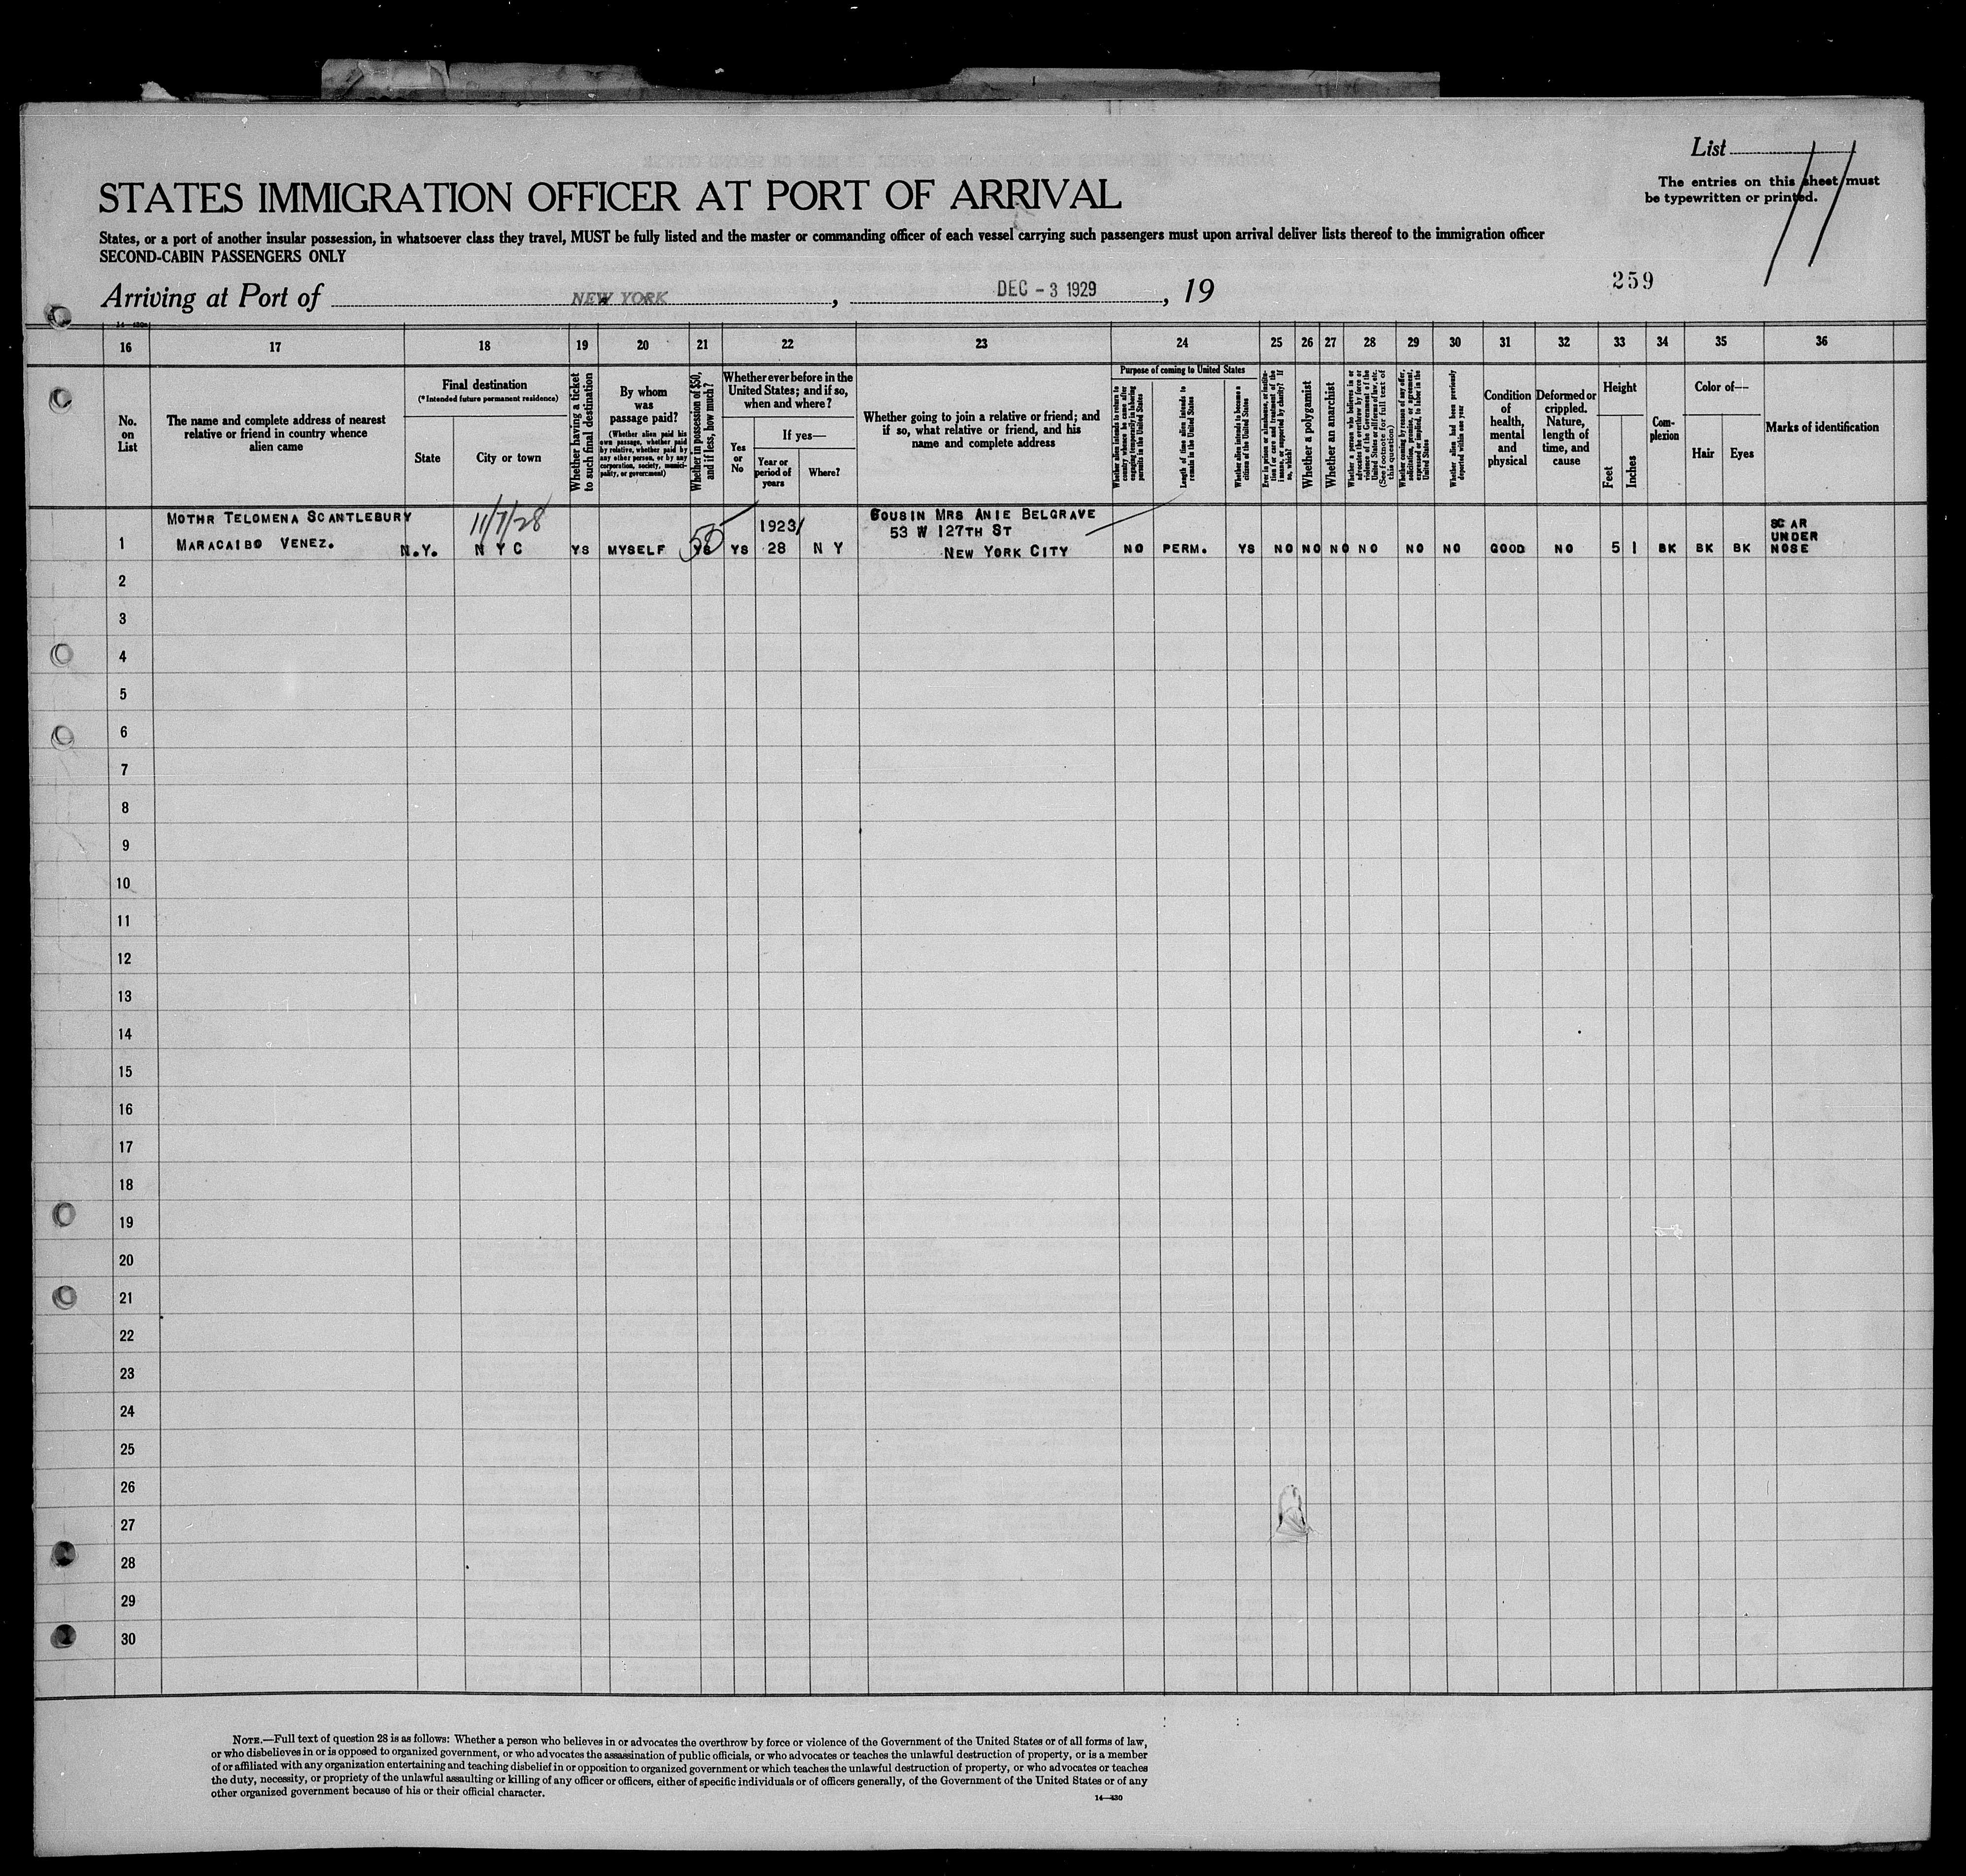 List
The entries on this sheet must
be typewritten or printed.
STATES IMMIGRATION OFFICER AT PORT OF ARRIVAL
States, or a port of another insular possession, in whatsoever class they travel, MUST be fully listed and the master or commanding officer of each vessel carrying such passengers must upon arrival deliver lists thereof to the immigration officer
SECOND-CABIN PASSENGERS ONLY
259
Arriving at Port of NEW YORK, DEC - 3 1929, 19
16 17 18 19 20 21 22 23 24 25 26 27 28 29 30 31 32 33 34 35 36
No.
on
List
The name and complete address of nearest
relative or friend in country whence
alien came
Final destination
(*Intended future permanent residence)
State
City or town
Whether having a ticket
to such final destination
By whom
was
passage paid?
(Whether alien paid his
own passage, whether paid
by relative, whether paid by
any other person, or by any
corporation, society, munici-
pality, or government)
Whether in possession of $50,
and if less, how much?
Whether ever before in the
United States; and if so,
when and where?
Yes
or
No
If yes—
Year or
period of
years
Where?
Whether going to join a relative or friend; and
if so, what relative or friend, and his
name and complete address
Purpose of coming to United States
Whether alien intends to return to
country whence he came after
engaging temporarily in laboring
pursuits in the United States
Length of time alien intends to
remain in the United States
Whether alien intends to become a
citizen of the United States
Whether a polygamist
Whether an anarchist
Whether a person who believes in or
advocates the overthrow by force or
violence of the Government of the
United States or all forms of law, etc.
(See footnote for full text of
this question)
Whether coming by reason of any offer,
solicitation, promise, or agreement,
expressed or implied, to labor in the
United States
Whether alien had been previously
deported within one year
Condition
of
health,
mental
and
physical
Deformed or
crippled.
Nature,
length of
time, and
cause
Height
Feet
Inches
Com-
plexion
Color of—
Hair
Eyes
Marks of identification
MOTHR TELOMENA SCANTLEBURY 11/7/28 1923/ COUSIN MRS ANIE BELGRAVE SCAR
53 W 127TH ST UNDER
1 MARACAIBO VENEZ. N.Y. N Y C YS MYSELF 50 YS YS 28 N Y NEW YORK CITY NO PERM. YS NO NO NO NO NO NO GOOD NO 5 1 BK BK BK NOSE
2
3
4
5
6
7
8
9
10
11
12
13
14
15
16
17
18
19
20
21
22
23
24
25
26
27
28
29
30
NOTE.—Full text of question 28 is as follows: Whether a person who believes in or advocates the overthrow by force or violence of the Government of the United States or of all forms of law,
or who disbelieves in or is opposed to organized government, or who advocates the assassination of public officials, or who advocates or teaches the unlawful destruction of property, or is a member
of or affiliated with any organization entertaining and teaching disbelief in or opposition to organized government or which teaches the unlawful destruction of property, or who advocates or teaches
the duty, necessity, or propriety of the unlawful assaulting or killing of any officer or officers, either of specific individuals or of officers generally, of the Government of the United States or of any
other organized government because of his or their official character.
14—430